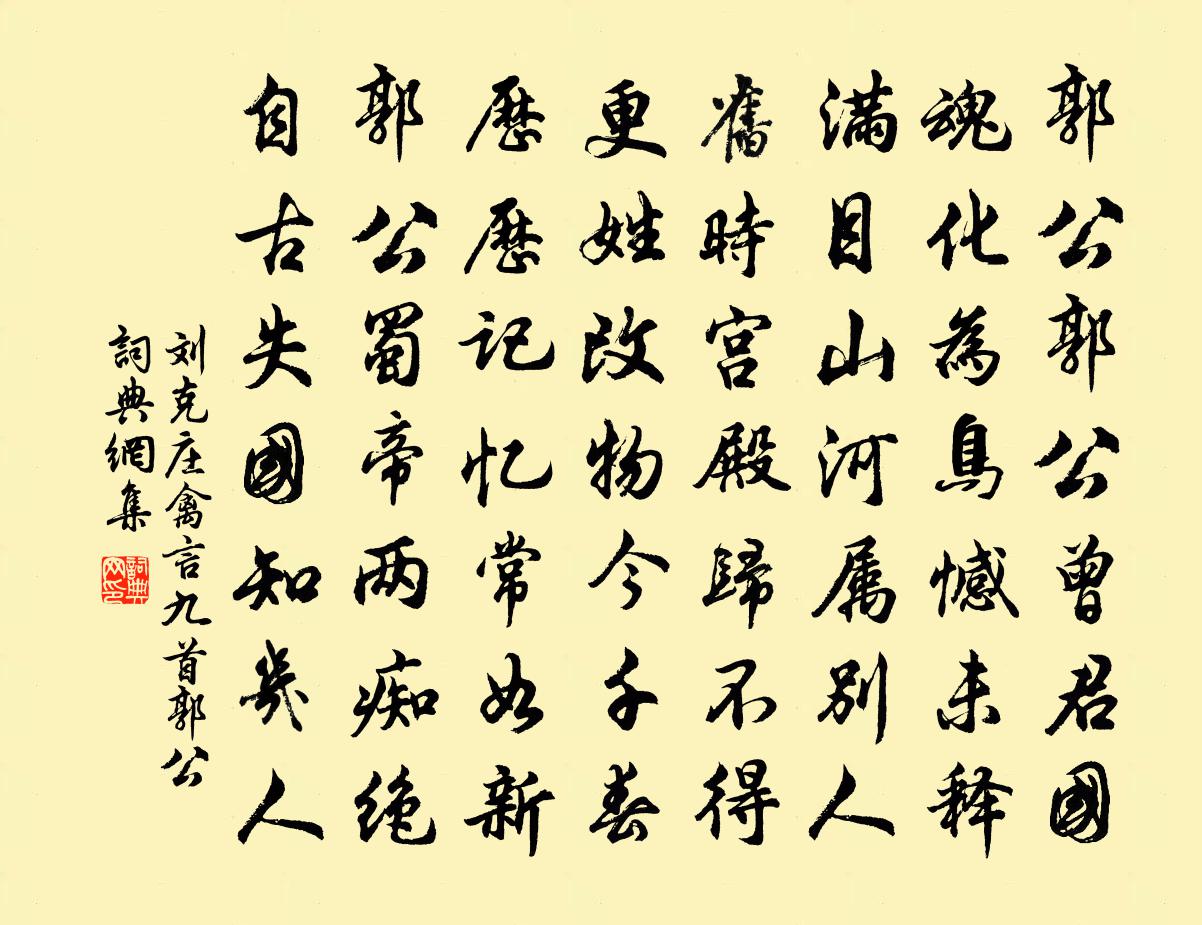 郭公郭公曾君國
魂化為鳥憾未释
满目山河属别人
舊時宫殿歸不得
更姓改物今千春
歷歷记忆常如新
郭公蜀帝两痴绝
自古失國知幾人
刘克庄禽言九首郭公
詞典網集
詞典
网印